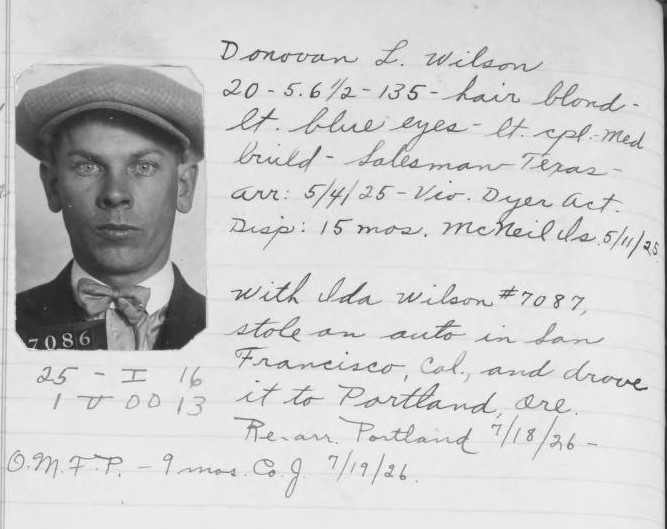 Donovan L. Wilson
20 - 5.6 1/2 - 135 - hair blond -
lt. blue eyes - lt. cpl. - Med
build - Salesman - Texas -
arr: 5/4/25 - Vio. Dyer Act.
Disp: 15 mos. McNeil Is. 5/11/25
With Ida Wilson #7087,
stole an auto in San
Francisco, Cal., and drove
it to Portland, Ore.
Re-arr. Portland 7/18/26 -
O.M.F.P. - 9 mos. Co. J. 7/19/26.
7086
25 - I 16
1 U OO 13